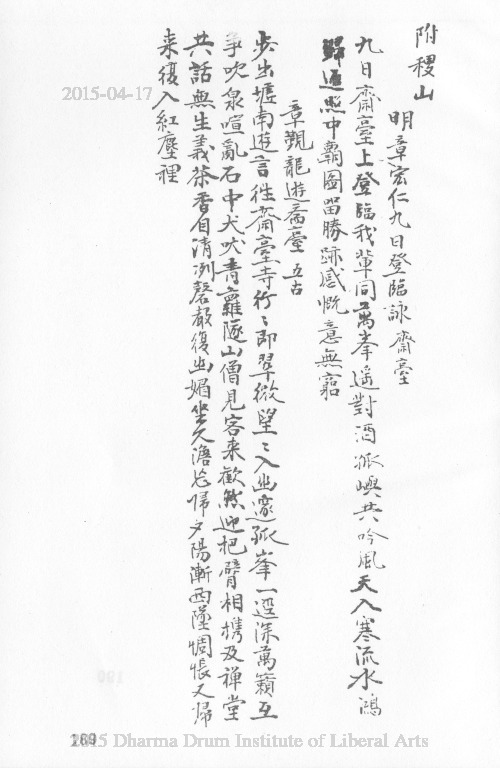 附稷山
明章宏仁九日登臨詠齋臺
九日齋臺上登臨我輩同萬峯遙對酒孤嶼共吟風天入寒流水鴻
歸返照中霸圖留勝跡感慨意無窮
章覲龍遊齋臺 五古
步出壚南遊言徃齋臺寺行〻即翠微望〻入幽邃孤峯一逕深萬籟互
爭吹泉喧亂石中犬吠青蘿隧山僧見客来歡然迎把臂相携及禪堂
共話無生義茶香自清冽磬聲復幽媚坐久澹忘歸夕陽漸西墜惆悵又歸
来復入紅塵裡
2015-04-17
2015 Dharma Drum Institute of Liberal Arts